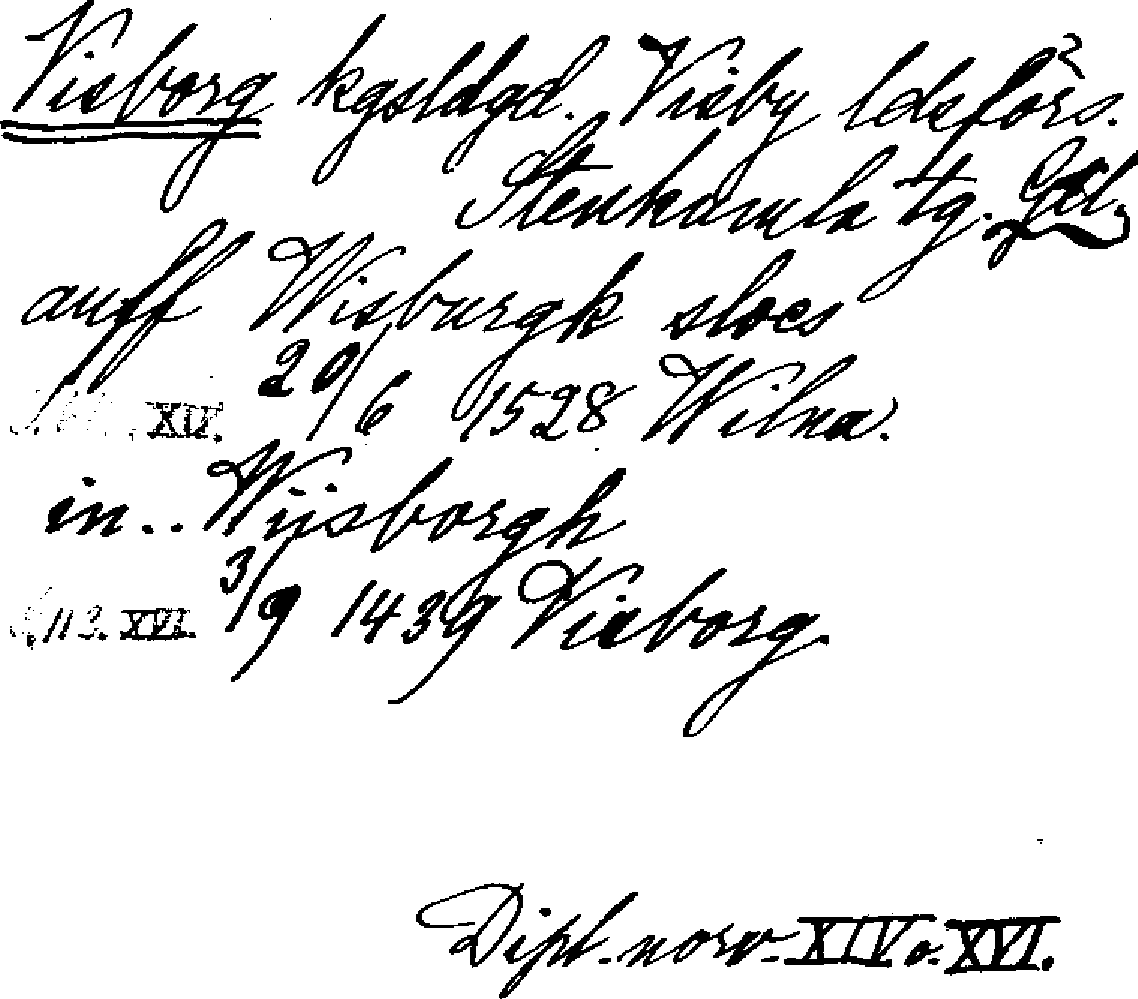 Visborg kgsldgd. Visby ldsförs.
Stenkumla tg. Gtl.
auff Wisburgk sloes
XIV. 20/6 1528 Wilna.
in.. Wijsborgh
113. XVI. 3/9 1439 Visborg.
Dipl. norv. XIV o. XVI.